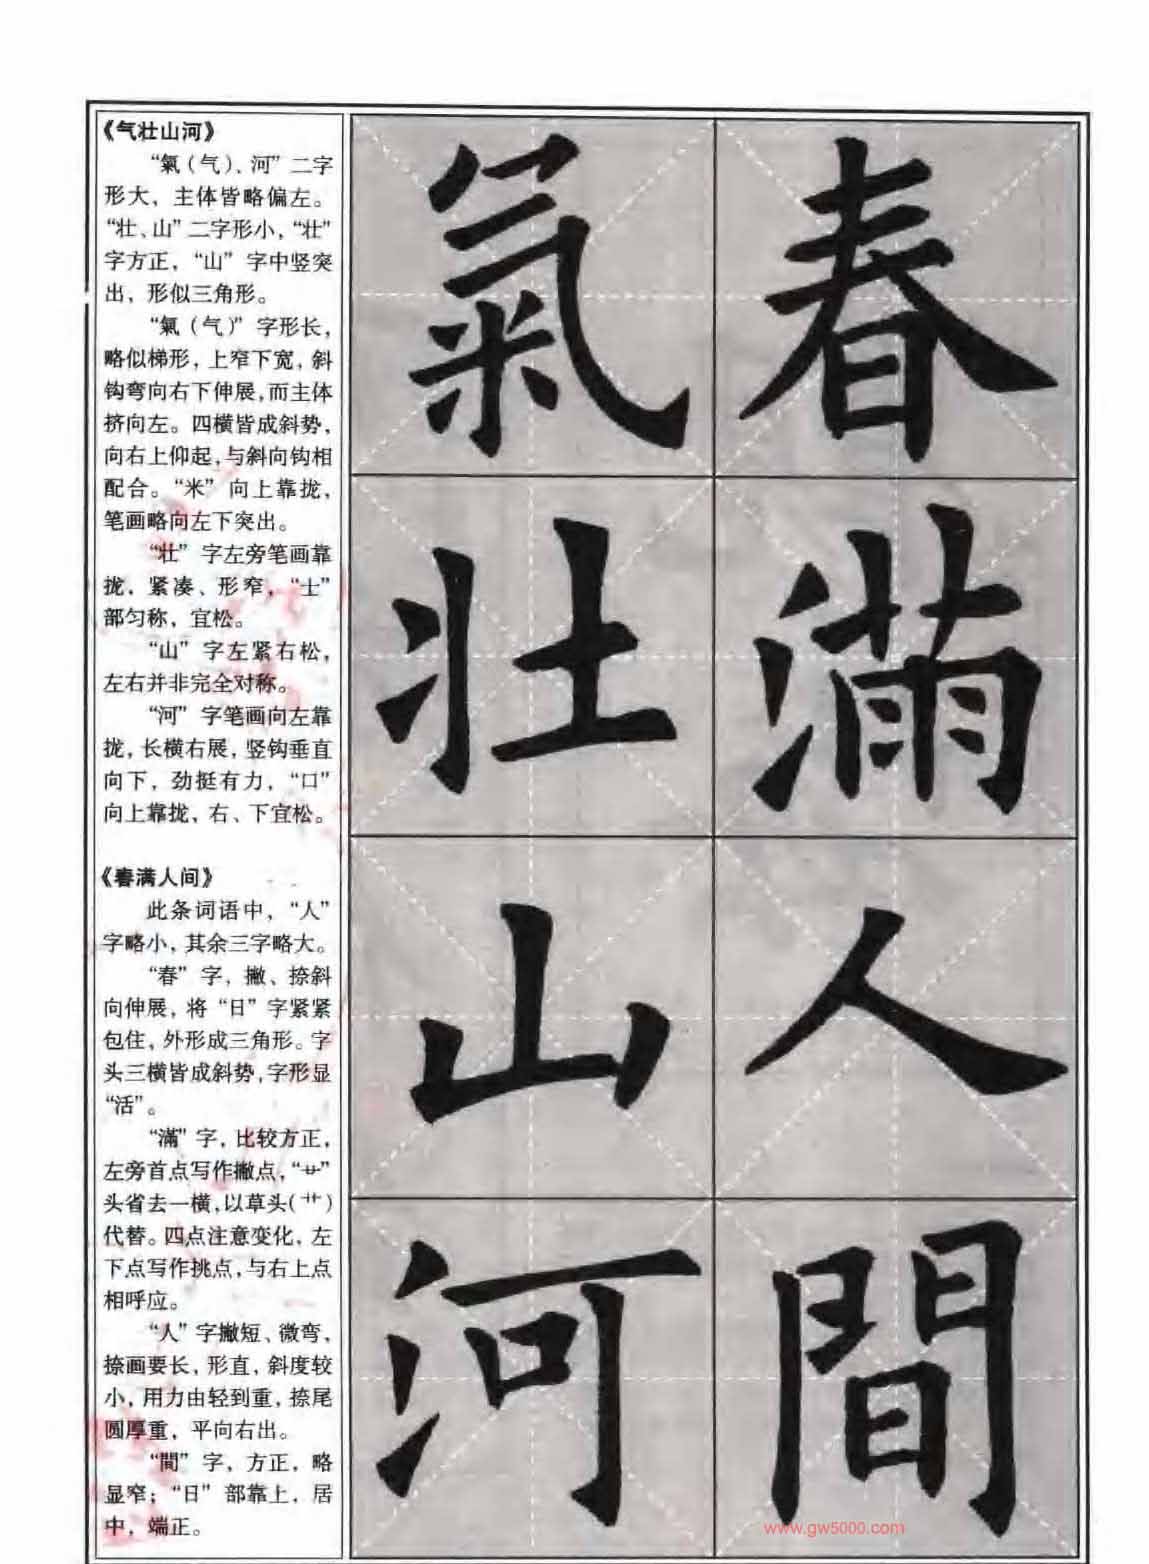 《气壮山河》
“氣（气）、河”二字
形大，主体皆略偏左。
“壮、山”二字形小，“壮”
字方正，“山”字中竖突
出，形似三角形。
“氣（气）”字形长，
略似梯形，上窄下宽，斜
钩弯向右下伸展，而主体
挤向左。四横皆成斜势，
向右上仰起，与斜向钩相
配合。“米”向上靠拢，
笔画略向左下突出。
“壮”字左旁笔画靠
拢，紧凑、形窄，“士”
部匀称，宜松。
“山”字左紧右松，
左右并非完全对称。
“河”字笔画向左靠
拢，长横右展，竖钩垂直
向下，劲挺有力，“口”
向上靠拢，右、下宜松。
《春满人间》
此条词语中，“人”
字略小，其余三字略大。
“春”字，撇、捺斜
向伸展，将“日”字紧紧
包住，外形成三角形。字
头三横皆成斜势，字形显
“活”。
“滿”字，比较方正，
左旁首点写作撇点，“廿”
头省去一横，以草头（艹）
代替。四点注意变化，左
下点写作挑点，与右上点
相呼应。
“人”字撇短、微弯，
捺画要长，形直，斜度较
小，用力由轻到重，捺尾
圆厚重，平向右出。
“間”字，方正，略
显窄；“日”部靠上，居
中，端正。
氣壮山河
春滿人間
www.gw5000.com